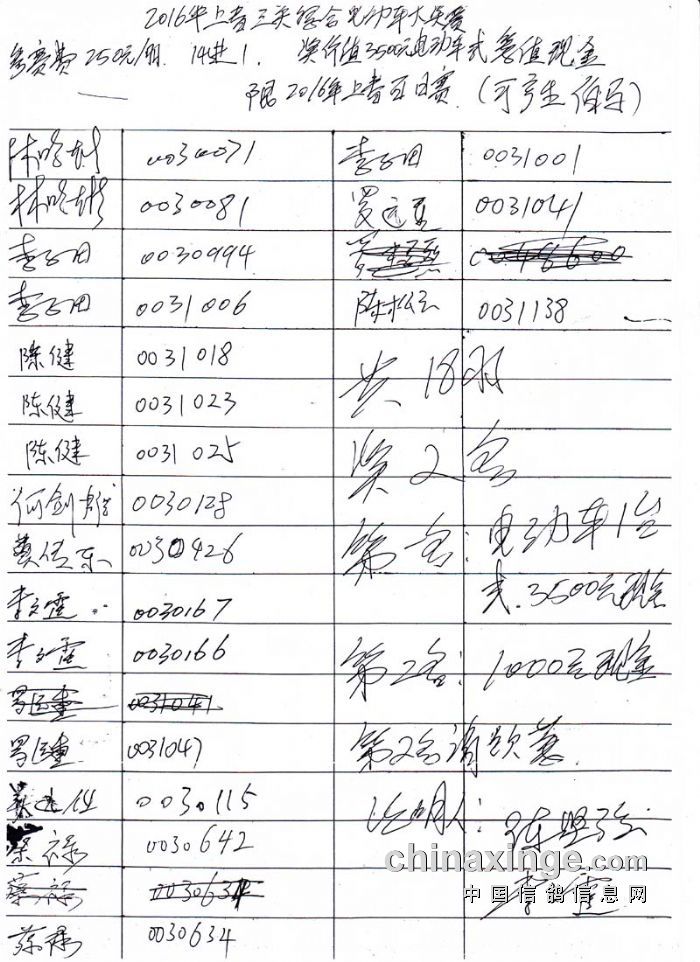 2016年上春三关综合电动车大奖赛
参赛费250元/羽. 14进1. 奖价值3500元电动车或等值现金
限2016年上春百日赛.(可产生伯乐)
0030071 李 0031001
0030081 罗远 0031041
李 0030994
李 0031006 陈松 0031138
陈健 0031018 共18羽
陈健 0031023
陈健 0031025 奖2名
何剑 0030128
0030426 第 名:电动车1台
或.3500元现金
李 0030167
李 0030166 第2名:1000元现金
0031041
0031047 第2名
0030115 证明人:陈坚
蔡禄 0030642
蔡禄 0030634
蔡禄 0030634
chinaxinge.com
中国信鸽信息网